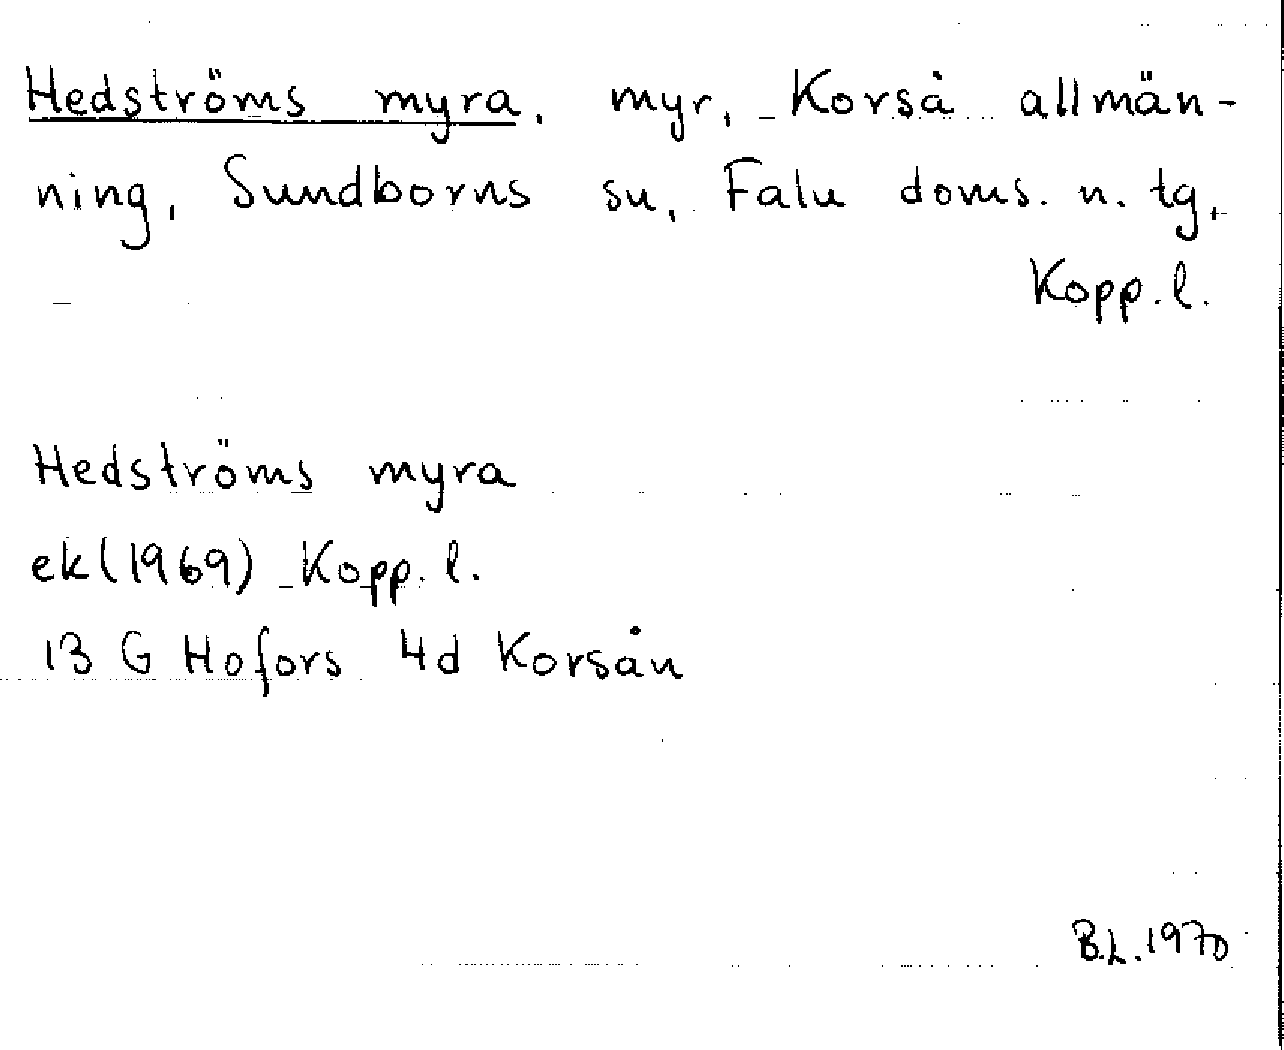 Hedströms myra, myr, Korså allmän-
ning, Sundborns sn, Falu doms. n. tg,
Kopp. l.
Hedströms myra
ek (1969) Kopp. l.
13 G Hofors 4d Korsån
B.L. 1970